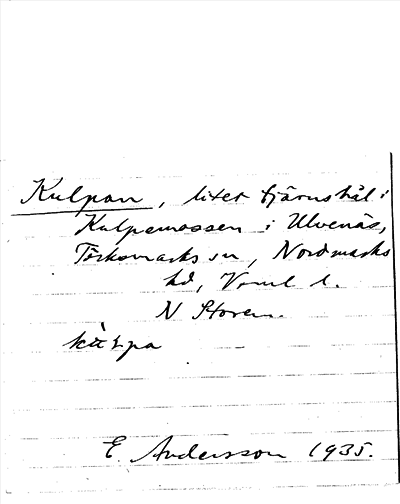 Kulpan, litet tjärnshål i
Kulpemossen i Ulvenäs,
Töcksmarks sn, Nordmarks
hd, Vrml l.
N Storen.
E. Andersson 1935.